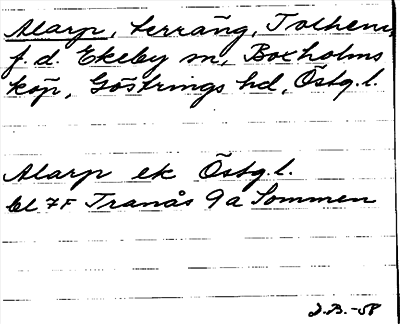 Alarp, terräng, Tolhem,
f.d. Ekeby sn, Boxholms
köp, Göstrings hd, Östg.l.
Alarp ek Östg.l.
bl 7F Tranås 9a Sommen
J.B.-58